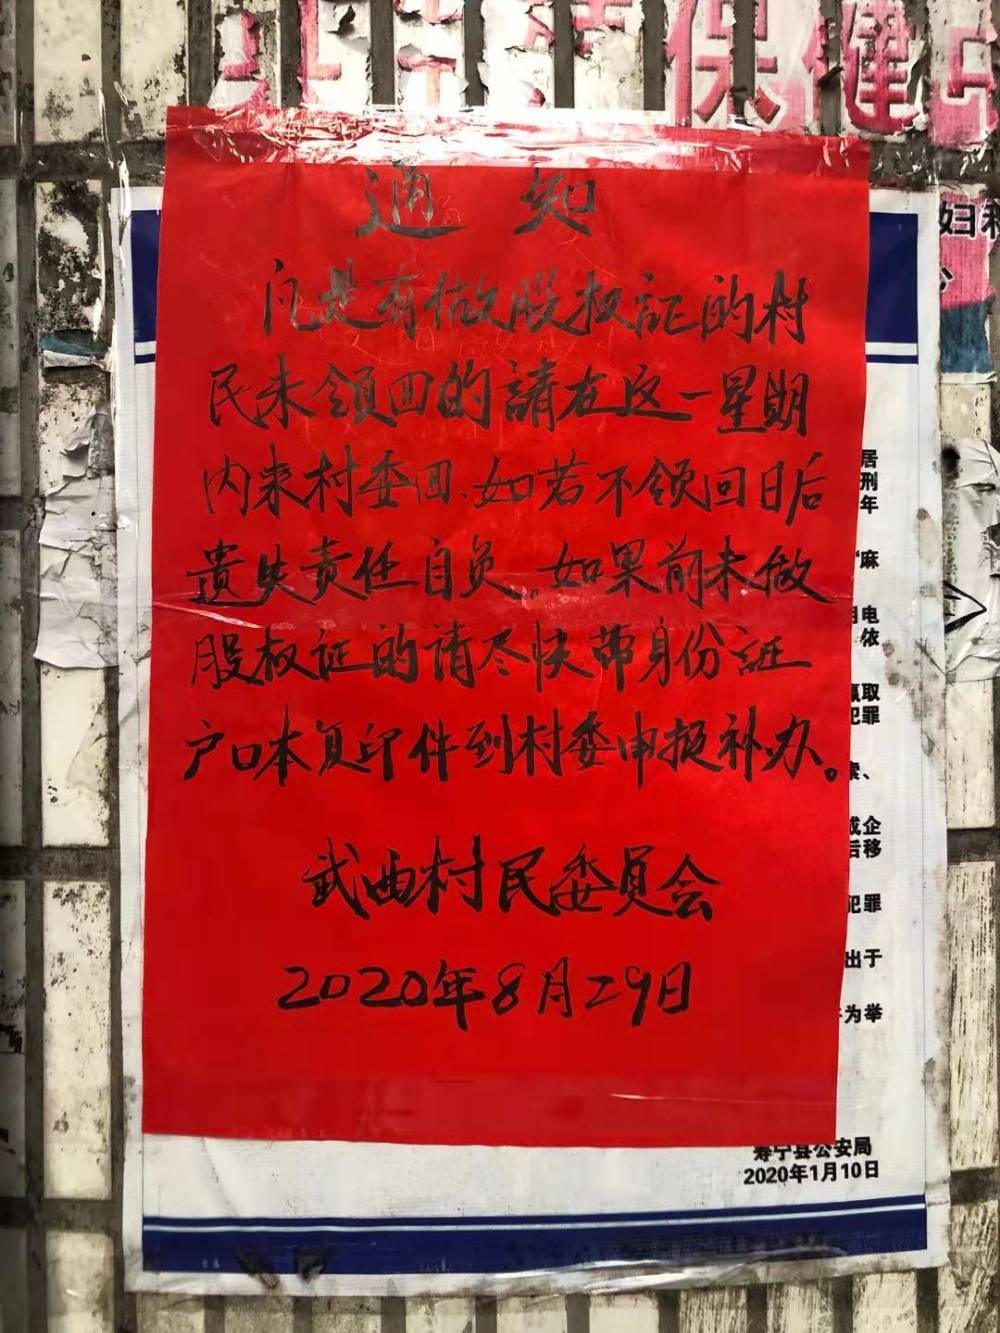 保健
妇科
通知
凡是有做股权証的村
民未领回的請在这一星期
内来村委回、如若不领回日后
遗失责任自负。如果前未做
股权证的请尽快带身份証
户口本复印件到村委申报补办。
武曲村民委员会
2020年8月29日
居
刑
年
麻
电
依
取
犯罪
索、
成企
后移
犯罪
出于
为举
寿宁县公安局
2020年1月10日